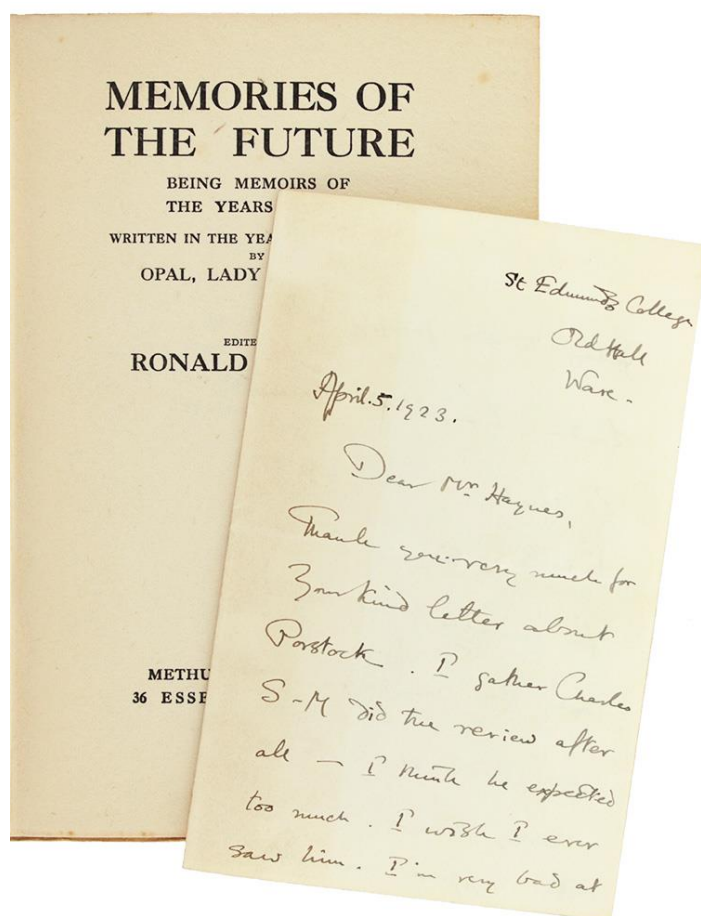 MEMORIES OF
THE FUTURE
BEING MEMOIRS OF
THE YEARS
WRITTEN IN THE YEA
BY
OPAL, LADY
EDITE
RONALD
METHU
36 ESSE
St Edmund's College
Old Hall
Ware.
April.5.1923.
Dear Mr Haynes,
Thank you very much for
your kind letter about
Porstock. I gather Charles
S-M did the review after
all — I think he expected
too much. I wish I ever
saw him. I'm very bad at